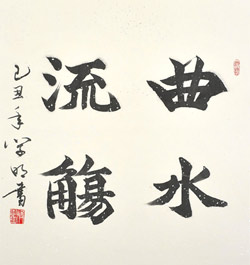 曲水
流觴
己丑年學明書